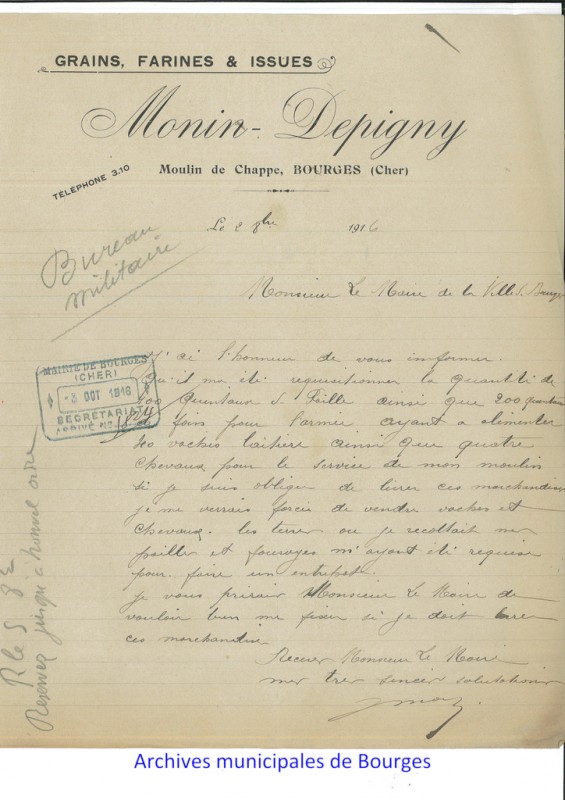 GRAINS, FARINES & ISSUES
Monin-Depigny
Moulin de Chappe, BOURGES (Cher)
TÉLÉPHONE 3.10
Le 2 8bre 1916
Bureau
militaire
Monsieur Le Maire de la Ville d. Bourges
J'ai l'honneur de vous informer
qu'il m'a été requisitionner la quantité de
MAIRIE DE BOURGES
(CHER)
-3 OCT 1916
SECRETARIAT
ARRIVÉ No
200 quintaux d. Paille ainsi que 200 quintaux
de foin pour l'armée ayant a alimenter
40 vaches laitière ainsi que quatre
chevaux pour le service de mon moulin
si je suis obliger de livrer ces marchandises
je me verrais forcé de vendre vaches et
chevaux. les terres ou je recoltait mes
pailles et fourages m'ayant été requise
pour faire un entrepot.
je vous prirais Monsieur Le Maire de
vouloir bien me fixer si je doit livrer
ces marchandise
Recever Monsieur Le Maire
mes tres sincer salutations
R le 5 8e
Reserver jusqu'à nouvel ordre
Archives municipales de Bourges